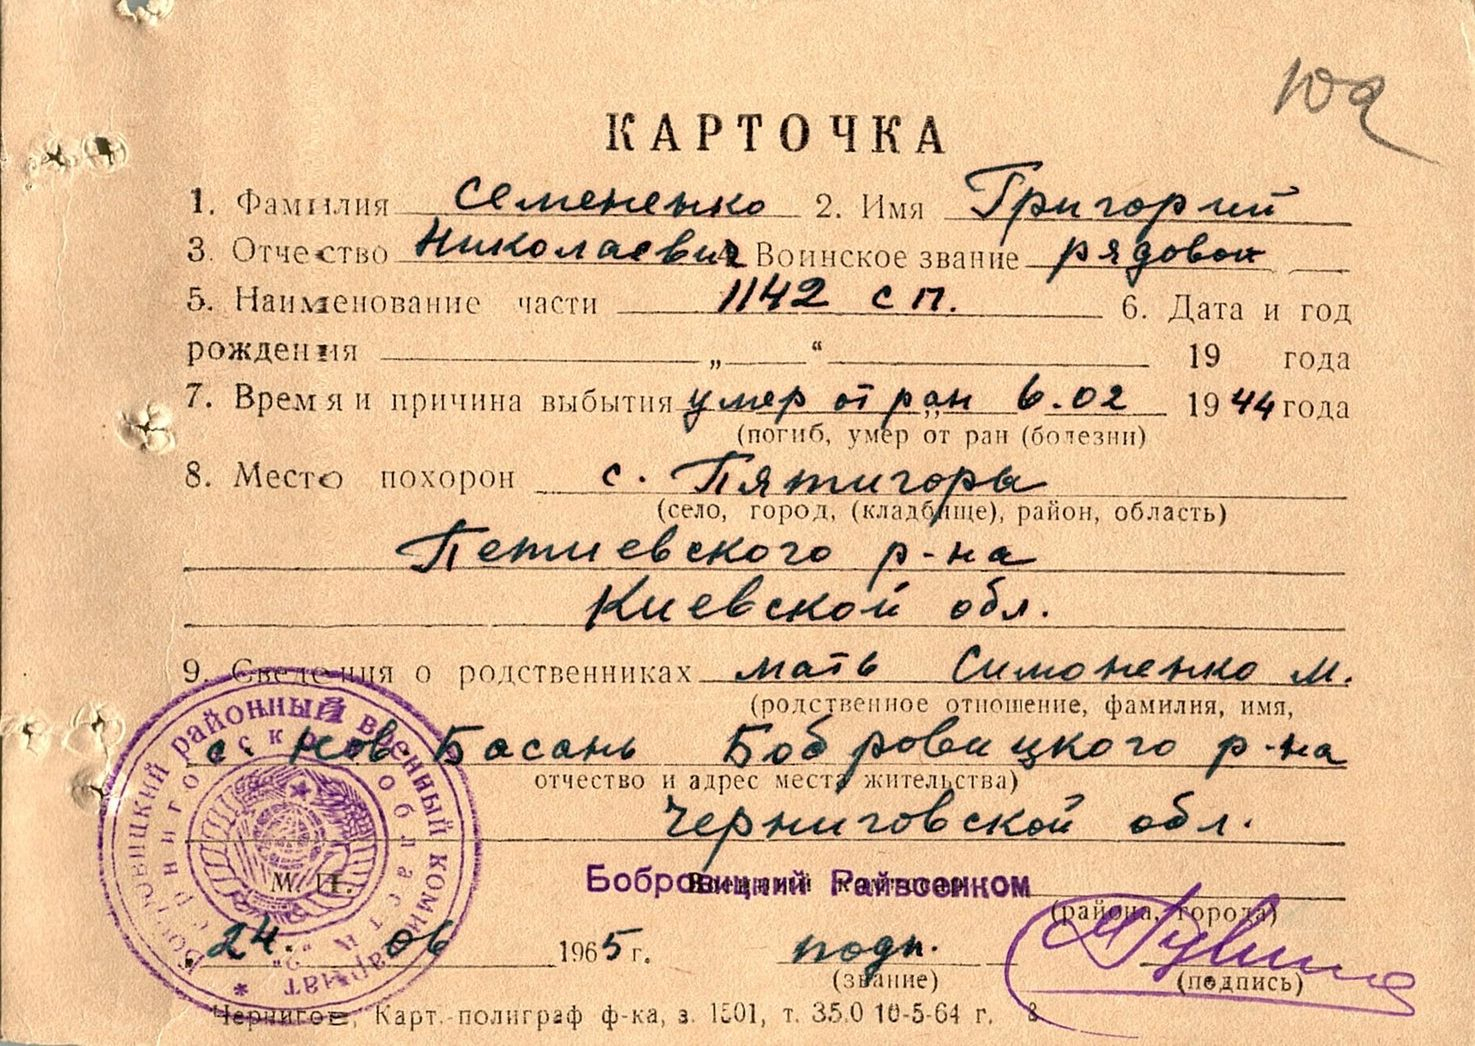 юд
КАРТОЧКА
1. Фамилия Семененко 2. Имя Григорий
3. Отчество Николаевич 4. Воинское звание рядовой
5. Наименование части 1142 сп. 6. Дата и год
рождения „ “ 19 года
7. Время и причина выбытия умер от ран 6.02 1944 года
(погиб, умер от ран (болезни)
8. Место похорон с. Пятигоры
(село, город, (кладбище), район, область)
Петиевского р-на
Киевской обл.
9. Сведения о родственниках мать Симоненко М.
(родственное отношение, фамилия, имя,
с. Нов Басань Бобровицкого р-на
отчество и адрес места жительства)
Черниговской обл.
Бобровицкий районный военный комиссариат
Черниговской области
М. П.
Бобровицкий Райвоенком
(района, города)
24. 06 1965 г. подп.
(звание) (подпись)
Чернигов, Карт.-полиграф ф-ка, з. 1501, т. 35.0 10-5-64 г.